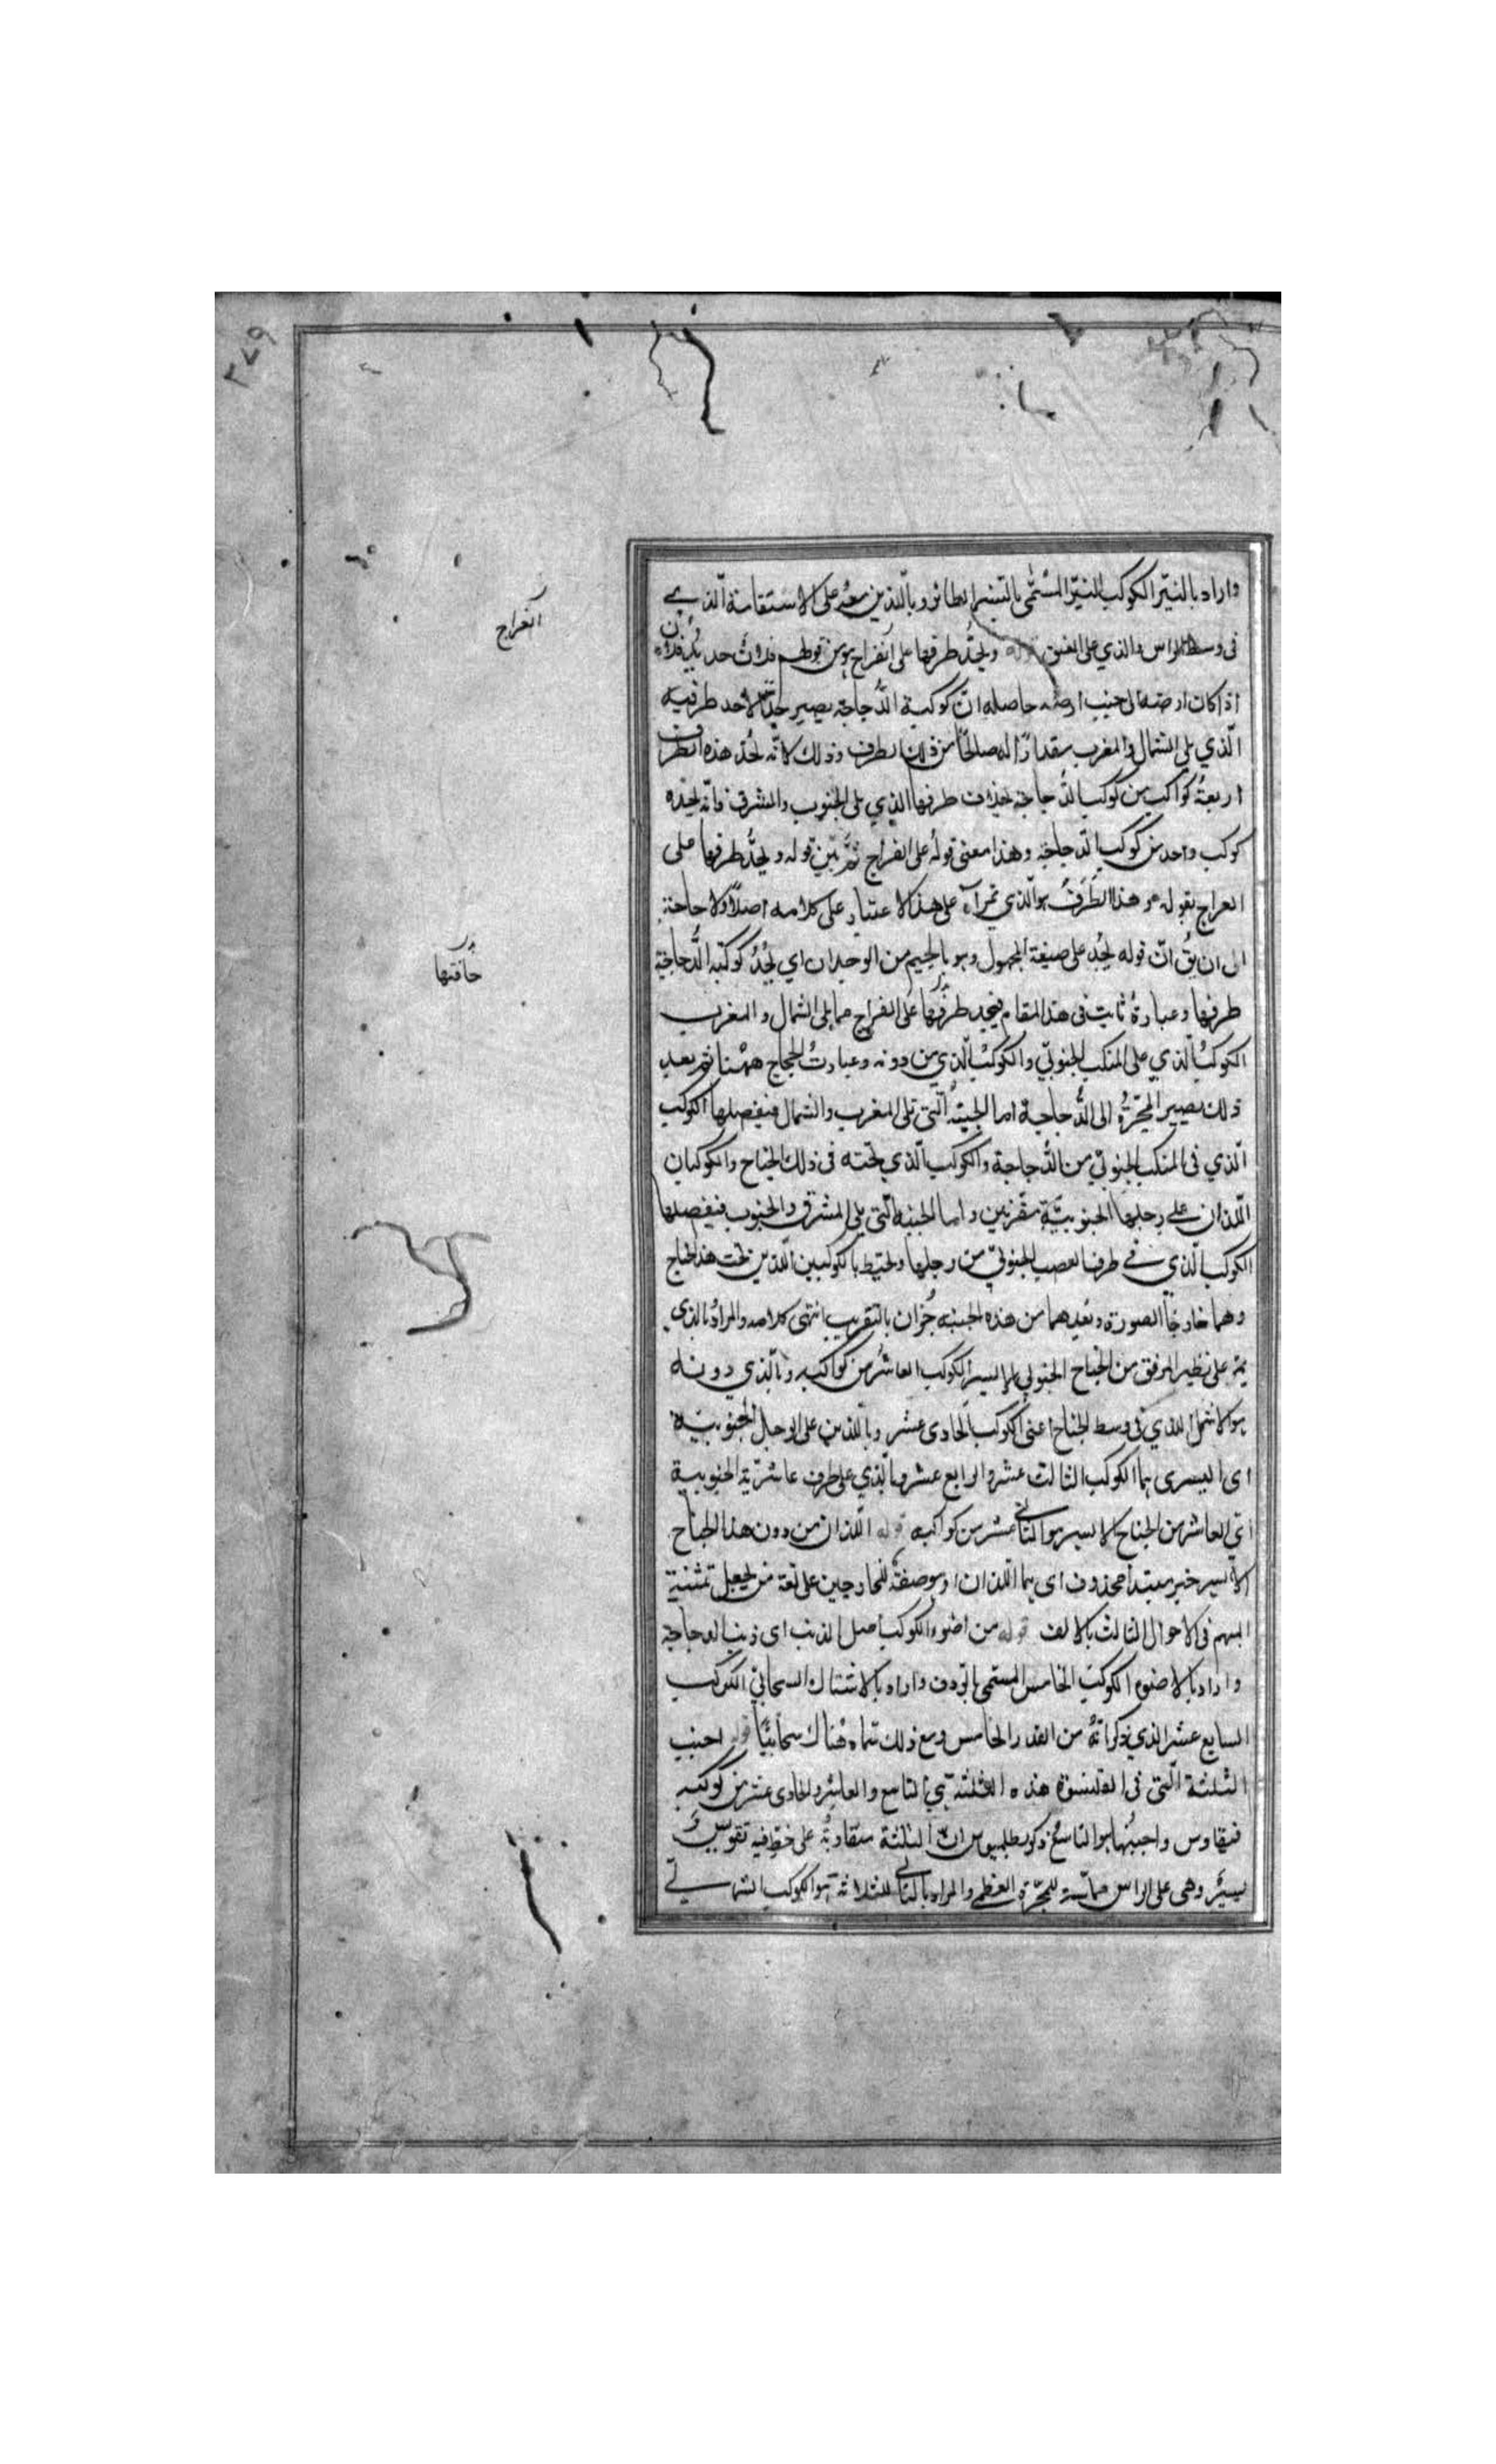 ٣٧٩
واراد بالنيّر الكوكب النيّر المسّمى بالنسر الطائر وباللذين معه على الاستقامة الذي
فى وسط الراس والذي على العنق قوله ويحدّ طرفها على انفراج هو من قولهم فلان حديد فلان
اذا كان ارضه الى جنب ارضه حاصله انّ كوكبة الدّجاجة يصير حدّا لاحد طرفيه
الّذي يلي الشمال والمغرب مقدارًا له صالحًا من ذلك الطرف وذلك لانّه يحدّ هذه الطرف
اربعةُ كواكب من كوكب الدّجاجة بخلاف طرفها الذي يلى الجنوب والمشرق فانّه يحدّه
كوكب واحد من كوكب الدجاجة وهذا معنى قوله على انفراج ثمّ بيّن قوله ويحدّ طرفها على
انفراج بقوله وهذا الطَرَفُ هو الّذي على هذا الاعتبار على كلامه اصلاً ولا حاجة
الى ان يقُ انّ قوله يجُد على صيغة المجهول وهو بالجيم من الوجدان اي يُجدُ كوكبة الدُّجاجة
طرفها وعبارةُ ثابت فى هذا المقام فيجد طرفها على انفراج مما يلى الشمال والمغرب
الكوكبُ الّذي على المنكب الجنوبيّ والكوكبُ الّذي من دونه وعبارتُ الحجاج ههُنا ثم بعد
ذلك يصير المجّرةُ الى الدُّجاجة اما الجنبة الّتى تلى المغرب والشمال فيفصلها الكوكب
الّذي فى المنكب الجنوبيّ من الدُّجاجة والكوكب الّذي تحته فى ذلك الجناح والكوكبان
الّلذان على رجلها الجنوبيّة مقترنين واما الجنبة الّتى يلى المشرق والجنوب فيفصلها
الكوكب الّذي فى طرف العصب الجنوبيّ من رجلها ويحيط بالكوكبين اللّذين تحت هذا الجناح
وهما خارجا الصورة وبُعدهما من هذه الجنبة جُزان بالتقريب انتهى كلامه والمرادُ بالذي
على نظير المرفق من الجناح الجنوبي الايسر الكوكب العاشر من كواكبه وبالّذي دونه
هو الاشمل الذي في وسط الجناح اعنى الكوكب الحادى عشر وباللذين على الرجل الجنوبية
اى اليسرى هما الكوكب الثالث عشر والرابع عشر وبالّذي على طرف عاشريّة الجنوبية
اي العاشر من الجناح الايسر هو الثاني عشر من كواكبه قوله اللّذان من دون هذا الجناح
الايسر خبر مبتدأ محذوف اى هما اللذان او هو صفة للخارجين على لغة من يجعل تثنية
المبهم فى الاحوال الثالث بالالف قوله من اضوء الكوكب اصل الذنب اى ذنب الدجاجة
واراد بالاضوء الكوكب الخامس المسّمى بالرّدف واراد بالاشتباك السحابيّ الكوكب
السابع عشر الذي ذكر انّهُ من القدر الخامس ومع ذلك سماه هُناك سحابيّاً قوله اجنب
الثلثة الّتى فى القلنسوة هذه الثلثة هي التاسع والعاشر والحادى عشر من كوكبه
قيقاوس واجنبُها هو التاسع ذكر بطلميوس انّ الثلثة متقاربةُ على خطّ فيه تقوّسُ
يسيرٌ وهى على الراس مماسة للمجرّة العظمى والمراد بالثاني للثلاثة هو الكوكب الشمالي
انفراج
حافتها